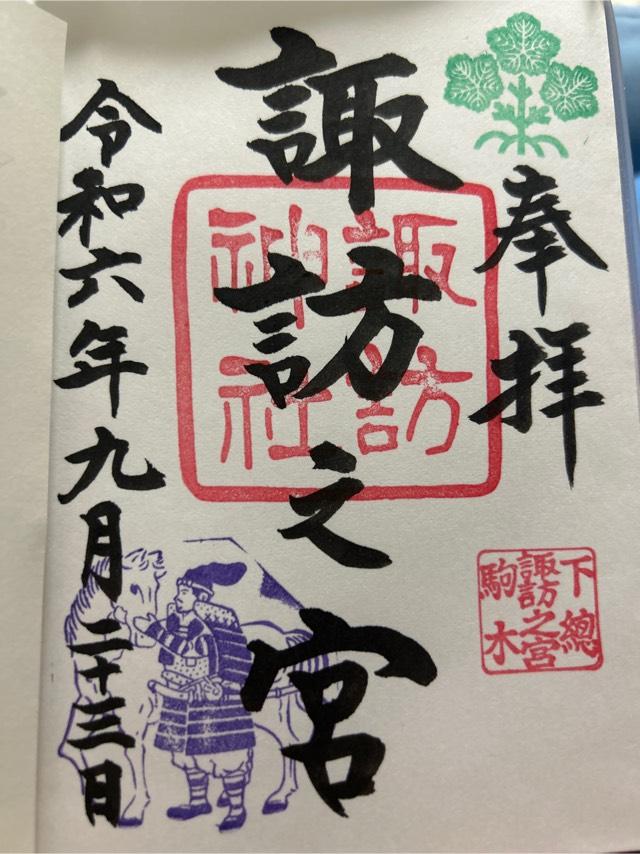 奉拝
諏訪之宮
諏訪
神社
下總
諏訪之宮
駒木
令和六年九月二十三日